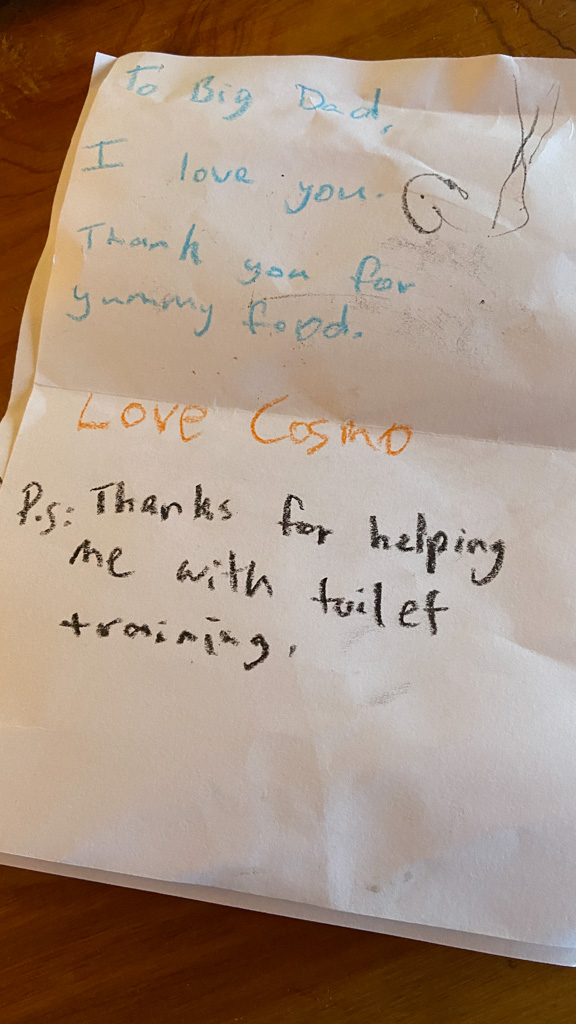 To Big Dad,
I love you.
Thank you for
yummy food.
Love Cosmo
P.S: Thanks for helping
me with toilet
training.